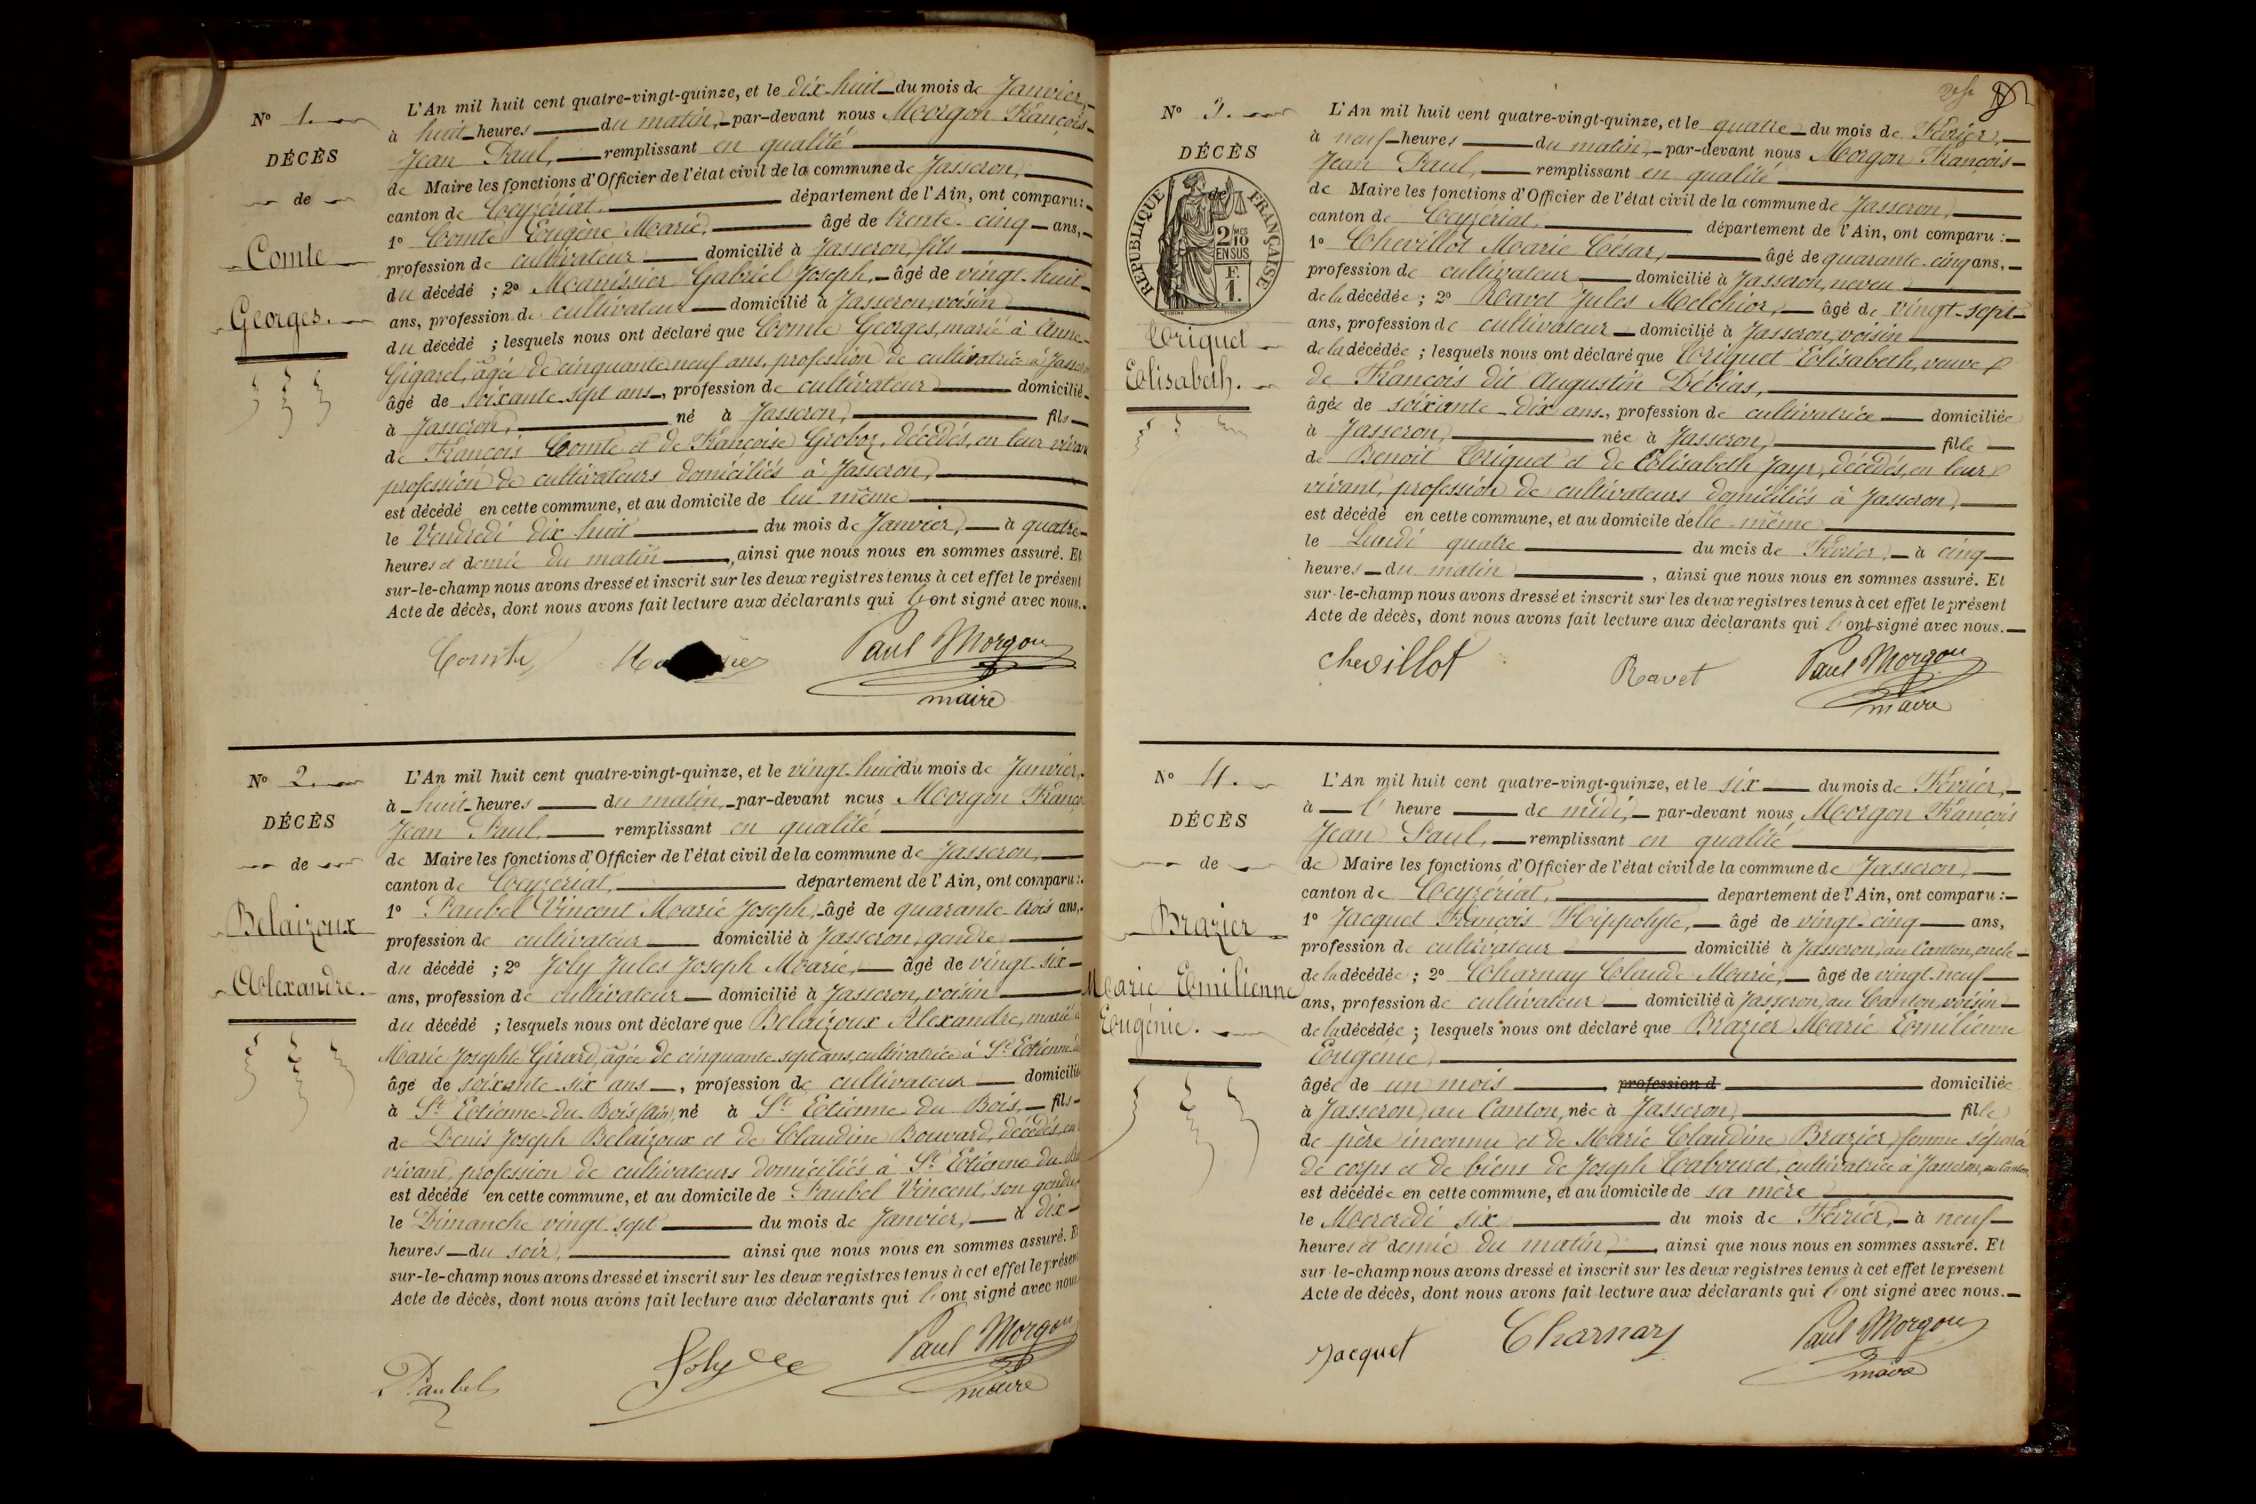 N° 1.
DÉCÈS
de
Comte
Georges.
L'An mil huit cent quatre-vingt-quinze, et le dix-huit du mois de Janvier,
à huit heures du matin, par-devant nous Morgon François
Jean Paul, remplissant en qualité
de Maire les fonctions d'Officier de l'état civil de la commune de Jasseron,
canton de Ceyzériat, département de l'Ain, ont comparu :
1° Comte Eugène Marie, âgé de trente-cinq ans,
profession de cultivateur domicilié à Jasseron, fils
du décédé ; 2° Manissier Gabriel Joseph, âgé de vingt-huit
ans, profession de cultivateur domicilié à Jasseron, voisin
du décédé ; lesquels nous ont déclaré que Comte Georges, marié à Anne
Gigarel, âgée de cinquante neuf ans, profession de cultivatrice à Jasseron
âgé de soixante-sept ans, profession de cultivateur domicilié
à Jasseron, né à Jasseron, fils
de François Comte et de Françoise Groboz, décédés, en leur vivant
profession de cultivateurs domiciliés à Jasseron,
est décédé en cette commune, et au domicile de lui-même
le Vendredi dix-huit du mois de Janvier, à quatre
heures et demie du matin, ainsi que nous nous en sommes assuré. Et
sur-le-champ nous avons dressé et inscrit sur les deux registres tenus à cet effet le présent
Acte de décès, dont nous avons fait lecture aux déclarants qui l'ont signé avec nous.
Comte Paul Morgon
maire
N° 2.
DÉCÈS
de
Belaizoux
Alexandre.
L'An mil huit cent quatre-vingt-quinze, et le vingt-huit du mois de Janvier,
à huit heures du matin, par-devant nous Morgon François
Jean Paul, remplissant en qualité
de Maire les fonctions d'Officier de l'état civil de la commune de Jasseron,
canton de Ceyzériat, département de l'Ain, ont comparu :
1° Paubel Vincent Marie Joseph, âgé de quarante-trois ans,
profession de cultivateur domicilié à Jasseron, gendre
du décédé ; 2° Joly Jules Joseph Marie, âgé de vingt-six
ans, profession de cultivateur domicilié à Jasseron, voisin
du décédé ; lesquels nous ont déclaré que Belaizoux Alexandre, marié à
Marie Josephte Girard, âgée de cinquante sept ans, cultivatrice à St Etienne du
âgé de soixante-six ans, profession de cultivateur domicilié
à St Etienne-du-Bois (Ain), né à St Etienne-du-Bois, fils
de Denis Joseph Belaizoux et de Claudine Bouvard, décédés, en
vivant, profession de cultivateurs domiciliés à St Etienne-du-Bois
est décédé en cette commune, et au domicile de Paubel Vincent, son gendre
le Dimanche vingt-sept du mois de Janvier, à dix
heures du soir, ainsi que nous nous en sommes assuré. Et
sur-le-champ nous avons dressé et inscrit sur les deux registres tenus à cet effet le présent
Acte de décès, dont nous avons fait lecture aux déclarants qui l'ont signé avec nous
Paubel Joly Paul Morgon
maire
N° 3.
DÉCÈS
de
RÉPUBLIQUE FRANÇAISE
2/10 MES
EN SUS
F.
1.
Triquet
Elisabeth.
L'An mil huit cent quatre-vingt-quinze, et le quatre du mois de Février,
à neuf heures du matin, par-devant nous Morgon François
Jean Paul, remplissant en qualité
de Maire les fonctions d'Officier de l'état civil de la commune de Jasseron,
canton de Ceyzériat, département de l'Ain, ont comparu :
1° Chevillot Marie César, âgé de quarante-cinq ans,
profession de cultivateur domicilié à Jasseron, neveu
de la décédée ; 2° Ravet Jules Melchior, âgé de vingt-sept
ans, profession de cultivateur domicilié à Jasseron, voisin
de la décédée ; lesquels nous ont déclaré que Triquet Elisabeth, veuve
de François dit Augustin Débias,
âgée de soixante-dix ans, profession de cultivatrice domiciliée
à Jasseron, née à Jasseron, fille
de Benoît Triquet et de Elisabeth Jayr, décédés, en leur
vivant, profession de cultivateurs domiciliés à Jasseron,
est décédé en cette commune, et au domicile d'elle-même
le Lundi quatre du mois de Février, à cinq
heures du matin, ainsi que nous nous en sommes assuré. Et
sur-le-champ nous avons dressé et inscrit sur les deux registres tenus à cet effet le présent
Acte de décès, dont nous avons fait lecture aux déclarants qui l'ont signé avec nous.
Chevillot Ravet Paul Morgon
maire
N° 4.
DÉCÈS
de
Brazier
Marie Emilienne
Eugénie.
L'An mil huit cent quatre-vingt-quinze, et le six du mois de Février,
à l' heure de midi, par-devant nous Morgon François
Jean Paul, remplissant en qualité
de Maire les fonctions d'Officier de l'état civil de la commune de Jasseron,
canton de Ceyzériat, département de l'Ain, ont comparu :
1° Jacquet François Hippolyte, âgé de vingt-cinq ans,
profession de cultivateur domicilié à Jasseron, au Canton, oncle
de la décédée ; 2° Charnay Claude Marie, âgé de vingt-neuf
ans, profession de cultivateur domicilié à Jasseron, au Canton, voisin
de la décédée ; lesquels nous ont déclaré que Brazier Marie Emilienne
Eugénie,
âgée de un mois profession d domiciliée
à Jasseron, au Canton, née à Jasseron, fille
de père inconnu et de Marie Claudine Brazier, femme séparée
de corps et de biens de Joseph Tabouret, cultivatrice à Jasseron, au Canton,
est décédée en cette commune, et au domicile de sa mère
le Mercredi six du mois de Février, à neuf
heures et demie du matin, ainsi que nous nous en sommes assuré. Et
sur-le-champ nous avons dressé et inscrit sur les deux registres tenus à cet effet le présent
Acte de décès, dont nous avons fait lecture aux déclarants qui l'ont signé avec nous.
Jacquet Charnay Paul Morgon
maire